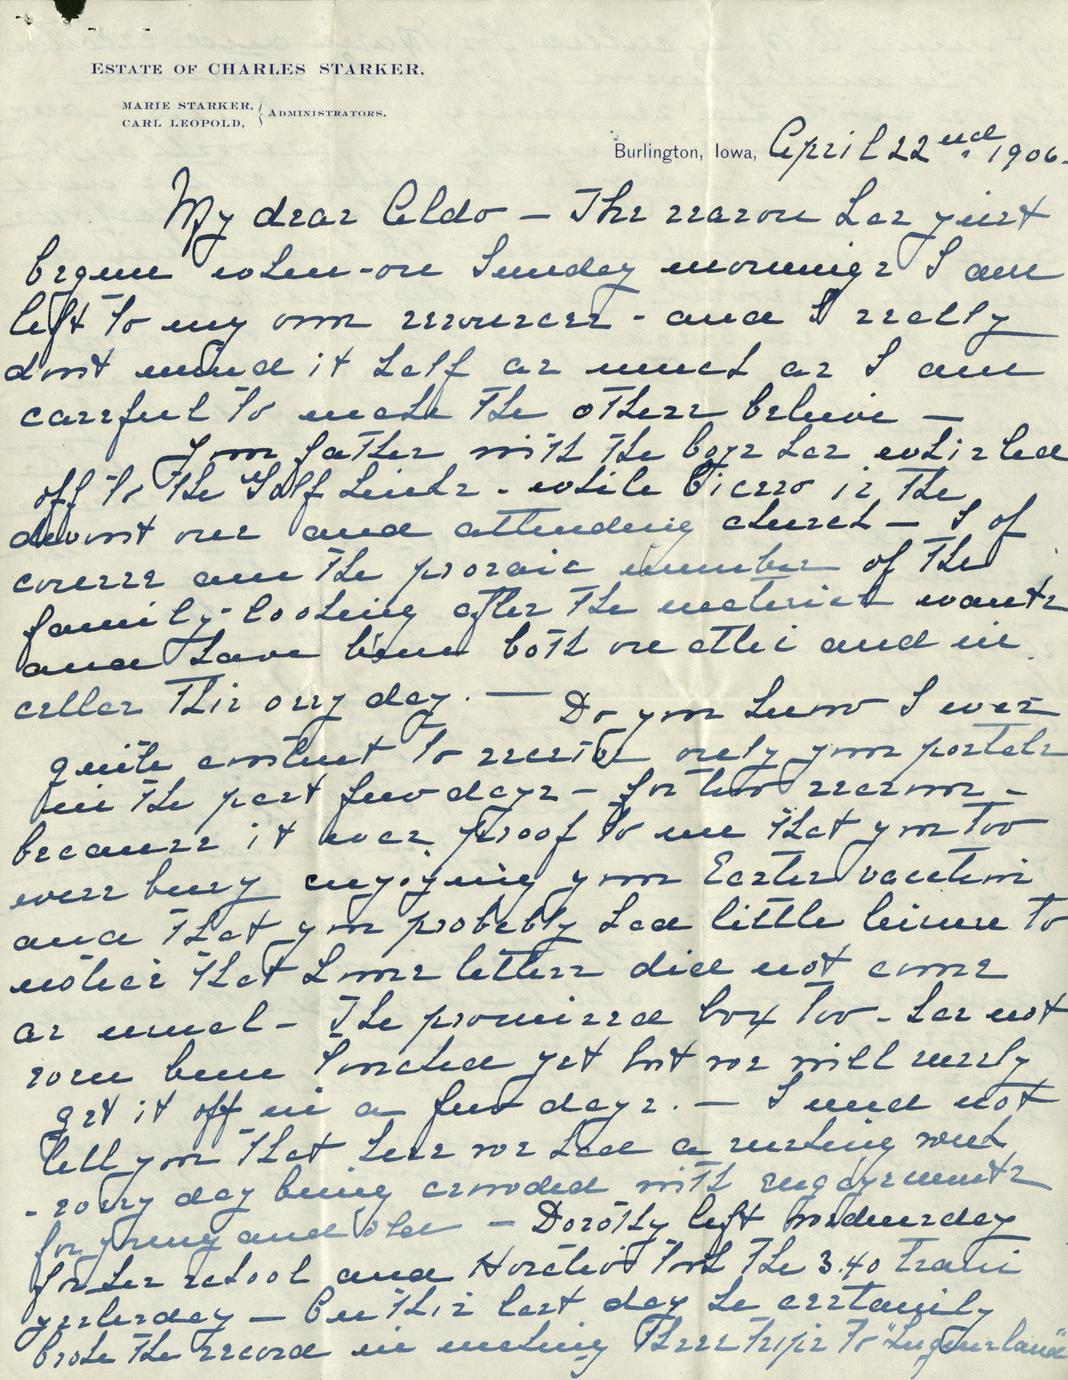 ESTATE OF CHARLES STARKER.
MARIE STARKER,
CARL LEOPOLD,
ADMINISTRATORS.
Burlington, Iowa, April 22nd, 1906.
My dear Aldo — The season has just
begun when - on Sunday mornings I am
left to my own resources - and I really
don't mind it half as much as I am
careful to make the others believe —
Your father with the boys has whirled
off to the Golf Links - while Cicero is the
devout one and attending church — I of
course am the prosaic member of the
family - looking after the material wants
and have been both on attic and in
cellar this very day. — Do you know I was
quite content to receive only your postals
in the past few days - for two reasons -
because it was proof to me that you too
were busy enjoying your Easter vacation
and that you probably had little leisure to
notice that home letters did not come
as usual - The promised box too - has not
even been touched yet but we will surely
get it off in a few days. — I need not
tell you that here we had a rushing week
- every day being crowded with engagements
for young and old — Dorothy left Wednesday
for her school and Horatio took the 3.40 train
yesterday — On this last day he certainly
broke the record in making three trips to "Lugenland"